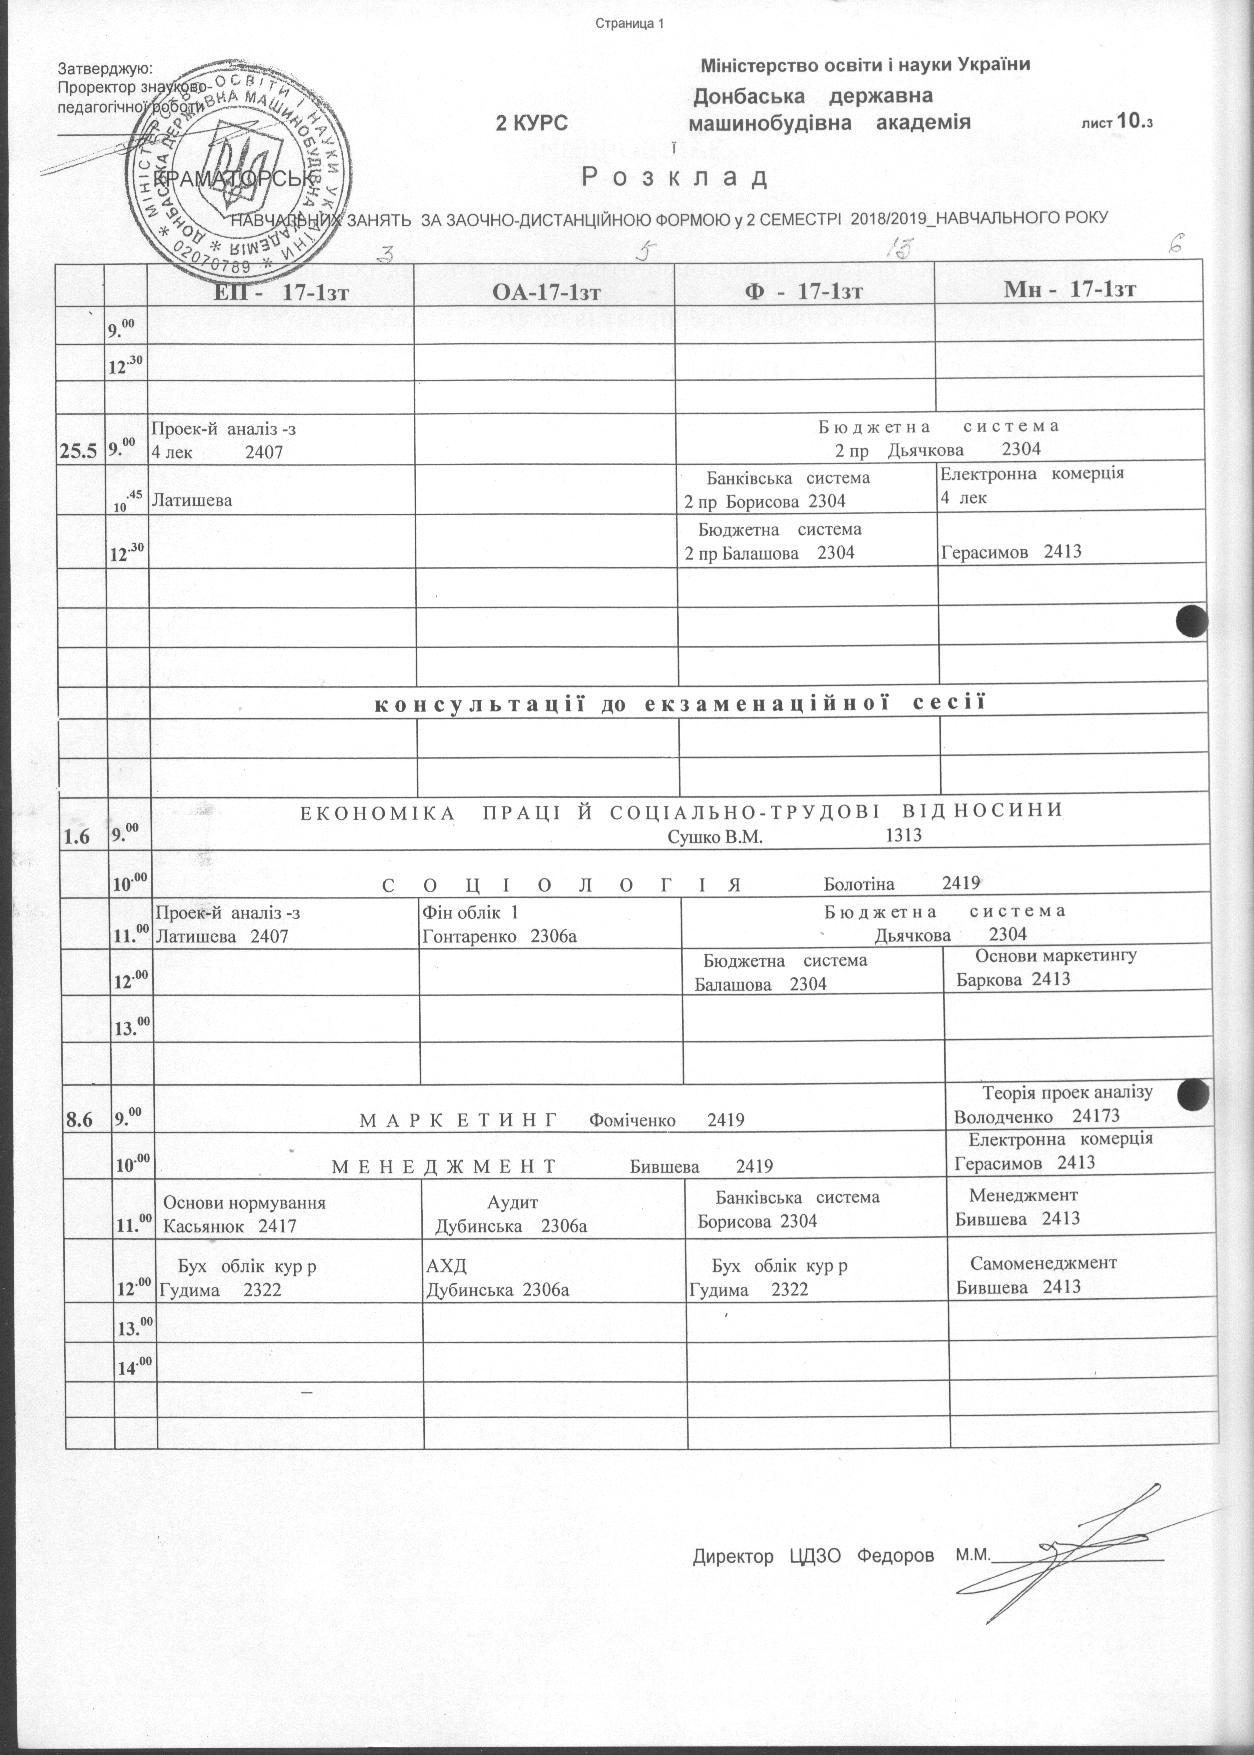 Страница 1
Затверджую:
Проректор знауково-
педагогічної роботи
КРАМАТОРСЬК
МІНІСТЕРСТВО ОСВІТИ І НАУКИ УКРАЇНИ * 02070789 *
ДОНБАСЬКА ДЕРЖАВНА МАШИНОБУДІВНА АКАДЕМІЯ *
2 КУРС
Міністерство освіти і науки України
Донбаська державна
машинобудівна академія
лист 10.3
ї
Розклад
НАВЧАЛЬНИХ ЗАНЯТЬ ЗА ЗАОЧНО-ДИСТАНЦІЙНОЮ ФОРМОЮ у 2 СЕМЕСТРІ 2018/2019_НАВЧАЛЬНОГО РОКУ
3 5 13 6
ЕП - 17-1зт ОА-17-1зт Ф - 17-1зт Мн - 17-1зт
9.00
12.30
25.5 9.00
Проек-й аналіз -з
4 лек 2407
Бюджетна система
2 пр Дьячкова 2304
10.45
Латишева
Банківська система
2 пр Борисова 2304
Електронна комерція
4 лек
12.30
Бюджетна система
2 пр Балашова 2304
Герасимов 2413
консультації до екзаменаційної сесії
1.6 9.00
ЕКОНОМІКА ПРАЦІ Й СОЦІАЛЬНО-ТРУДОВІ ВІДНОСИНИ
Сушко В.М. 1313
10.00
СОЦІОЛОГІЯ Болотіна 2419
11.00
Проек-й аналіз -з
Латишева 2407
Фін облік 1
Гонтаренко 2306а
Бюджетна система
Дьячкова 2304
12.00
Бюджетна система
Балашова 2304
Основи маркетингу
Баркова 2413
13.00
8.6 9.00
МАРКЕТИНГ Фоміченко 2419
Теорія проек аналізу
Володченко 24173
10.00
МЕНЕДЖМЕНТ Бившева 2419
Електронна комерція
Герасимов 2413
11.00
Основи нормування
Касьянюк 2417
Аудит
Дубинська 2306а
Банківська система
Борисова 2304
Менеджмент
Бившева 2413
12.00
Бух облік кур р
Гудима 2322
АХД
Дубинська 2306а
Бух облік кур р
Гудима 2322
Самоменеджмент
Бившева 2413
13.00
14.00
Директор ЦДЗО Федоров М.М.